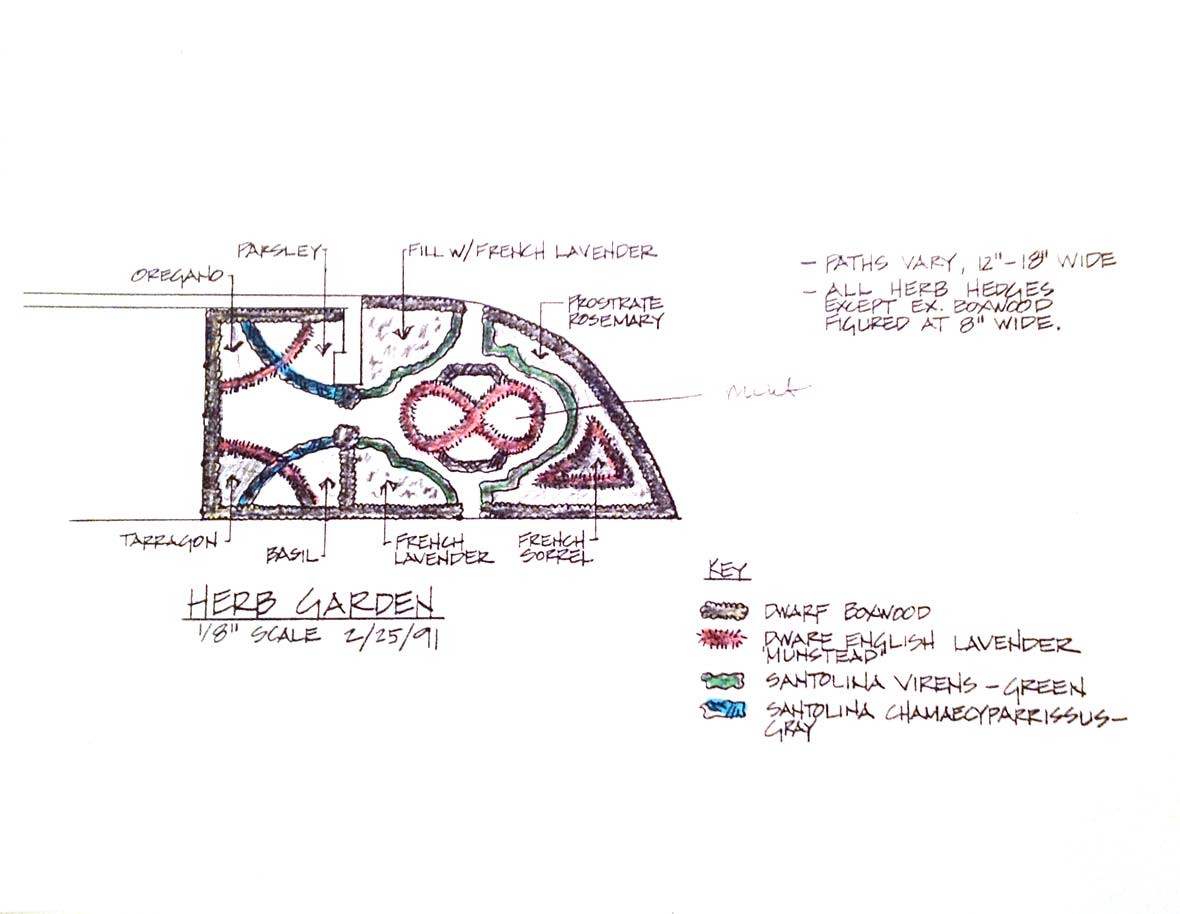 PARSLEY
FILL W/FRENCH LAVENDER
OREGANO
PROSTRATE
ROSEMARY
- PATHS VARY, 12"-18" WIDE
- ALL HERB HEDGES
EXCEPT EX. BOXWOOD
FIGURED AT 8" WIDE.
Mint
TARRAGON
BASIL
FRENCH
LAVENDER
FRENCH
SORREL
HERB GARDEN
1/8" SCALE 2/25/91
KEY
DWARF BOXWOOD
DWARF ENGLISH LAVENDER
'MUNSTEAD'
SANTOLINA VIRENS - GREEN
SANTOLINA CHAMAECYPARRISSUS-
GRAY